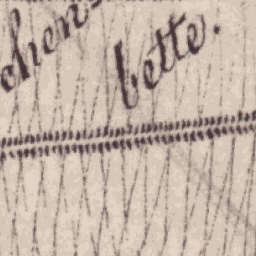 chens
bette.